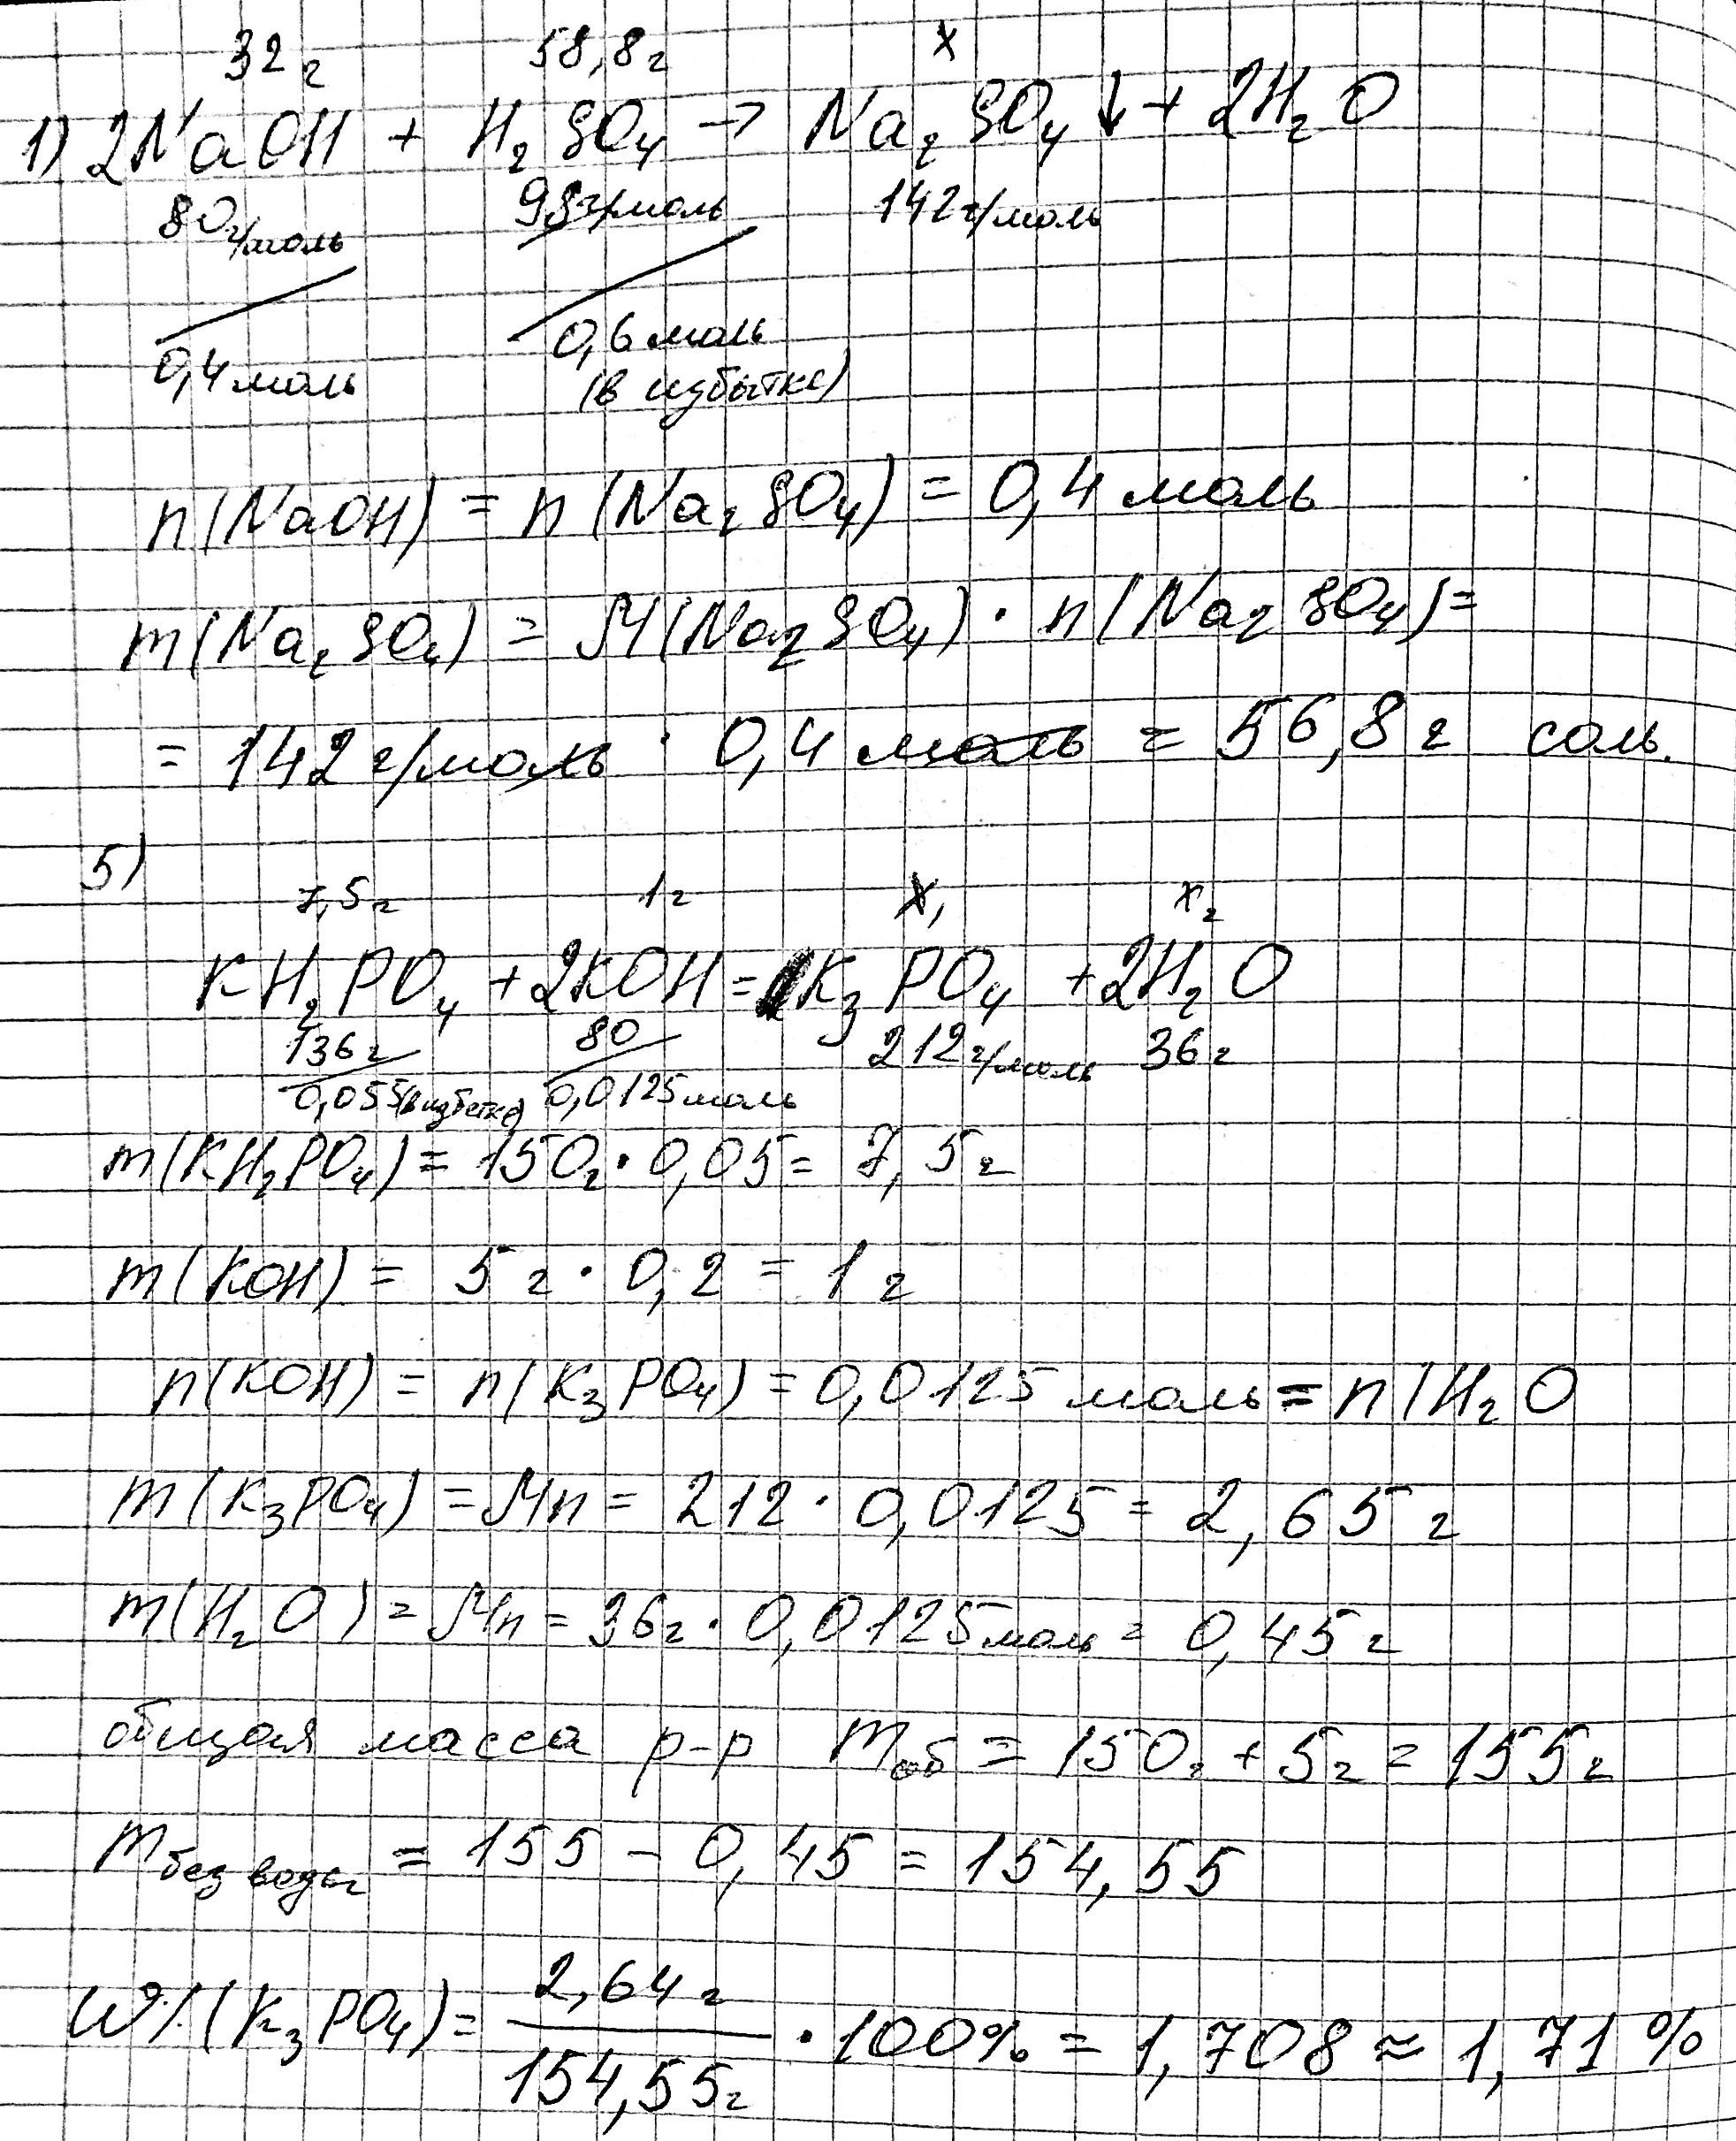 32 г 58,8 г x
1) 2NaOH + H₂SO₄ → Na₂SO₄↓ + 2H₂O
80 г/моль 98 г/моль 142 г/моль
0,4 моль 0,6 моль
(в избытке)
n(NaOH) = n(Na₂SO₄) = 0,4 моль
m(Na₂SO₄) = M(Na₂SO₄) · n(Na₂SO₄) =
= 142 г/моль · 0,4 моль = 56,8 г соль.
5)
7,5 г 1 г x₁ x₂
KH₂PO₄ + 2KOH = 1K₃PO₄ + 2H₂O
136 г 80 212 г/моль 36 г
0,055 (в избетке) 0,0125 моль
m(KH₂PO₄) = 150 г · 0,05 = 7,5 г
m(KOH) = 5 г · 0,2 = 1 г
n(KOH) = n(K₃PO₄) = 0,0125 моль = n(H₂O
m(K₃PO₄) = Mn = 212 · 0,0125 = 2,65 г
m(H₂O) = Mn = 36 г · 0,0125 моль = 0,45 г
общая масса р-р mоб = 150 г + 5 г = 155 г
m без воды = 155 - 0,45 = 154,55
2,64 г
W%(K₃PO₄) = ——— · 100% = 1,708 ≈ 1,71 %
154,55 г